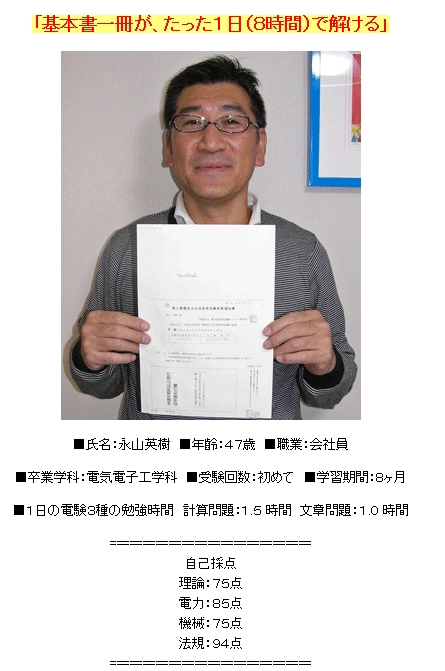 「基本書一冊が、たった1日(8時間)で解ける」
第三種電気主任技術者試験結果通知書
■氏名:永山英樹 ■年齢:47歳 ■職業:会社員
■卒業学科:電気電子工学科 ■受験回数:初めて ■学習期間:8ヶ月
■1日の電験3種の勉強時間 計算問題:1.5時間 文章問題:1.0時間
==================
自己採点
理論:75点
電力:85点
機械:75点
法規:94点
==================